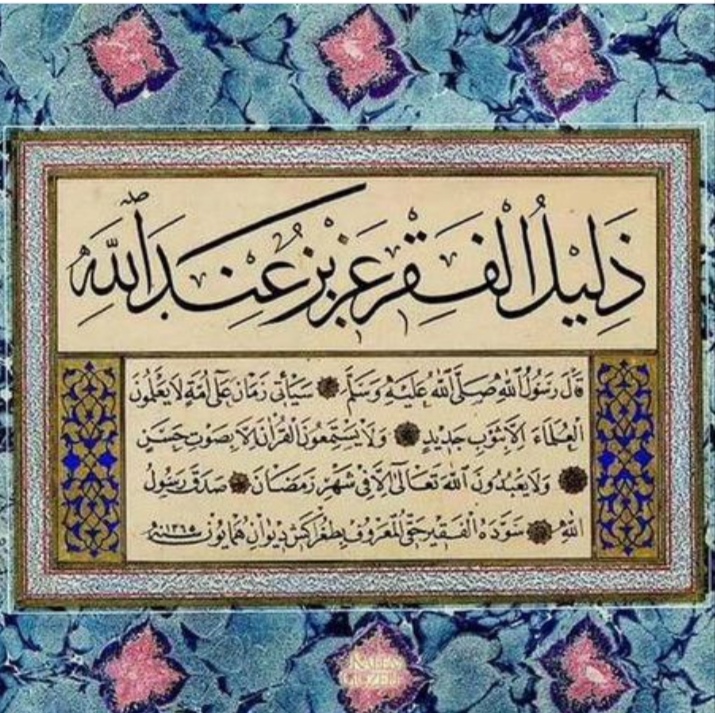 ذَلِيلُ الْفَقْرِ عَزِيزٌ عِنْدَ اللّٰهِ
قَالَ رَسُولُ اللّٰهِ صَلَّى اللّٰهُ عَلَيْهِ وَسَلَّمَ سَيَأْتِي زَمَانٌ عَلَى أُمَّةٍ لَا يَعْلَمُونَ
الْعُلَمَاءَ إِلَّا بِثَوْبٍ جَدِيدٍ وَلَا يَسْتَمِعُونَ الْقُرْآنَ إِلَّا بِصَوْتٍ حَسَنٍ
وَلَا يَعْبُدُونَ اللّٰهَ تَعَالَى إِلَّا فِي شَهْرِ رَمَضَانَ صَدَقَ رَسُولُ
اللّٰهِ سَوَّدَهُ الْفَقِيرُ حَقِّي الْمَعْرُوفُ بِطُغْرَاكَشِ دِيوَانِ هُمَايُونْ سَنَة ١٣٦٥